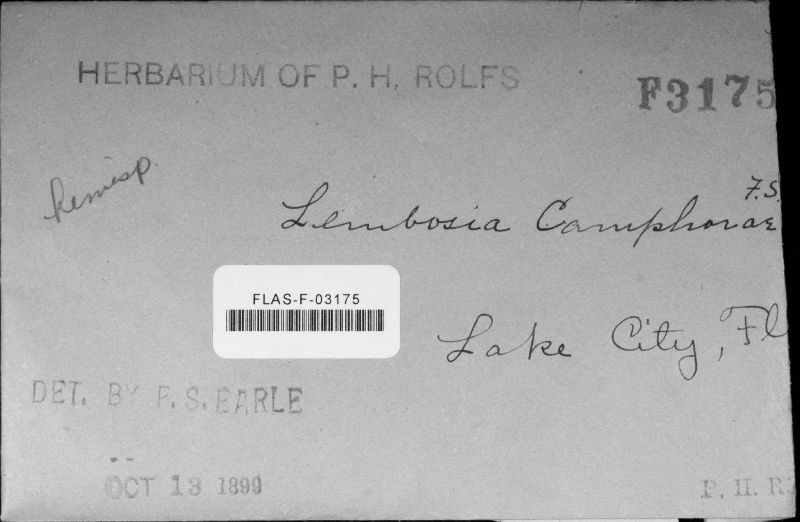 HERBARIUM OF P. H. ROLFS
F3175
hemisp.
F.S.
Lembosia Camphorae
FLAS-F-03175
Lake City, Fl
DET. BY F. S. EARLE
OCT 13 1899
P. H. R